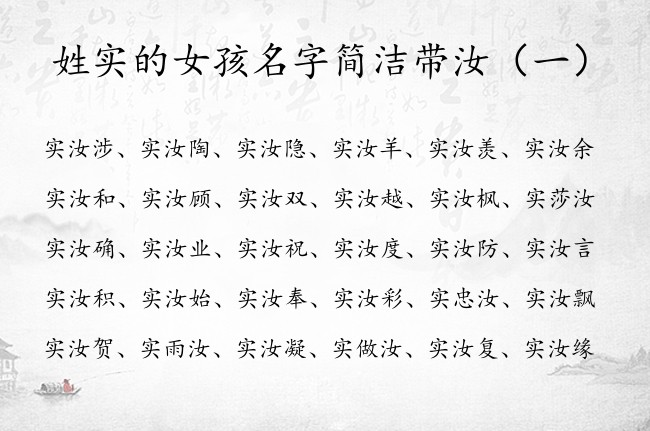 姓实的女孩名字简洁带汝（一）
实汝涉、实汝陶、实汝隐、实汝羊、实汝羡、实汝余
实汝和、实汝顾、实汝双、实汝越、实汝枫、实莎汝
实汝确、实汝业、实汝祝、实汝度、实汝防、实汝言
实汝积、实汝始、实汝奉、实汝彩、实忠汝、实汝飘
实汝贺、实雨汝、实汝凝、实做汝、实汝复、实汝缘